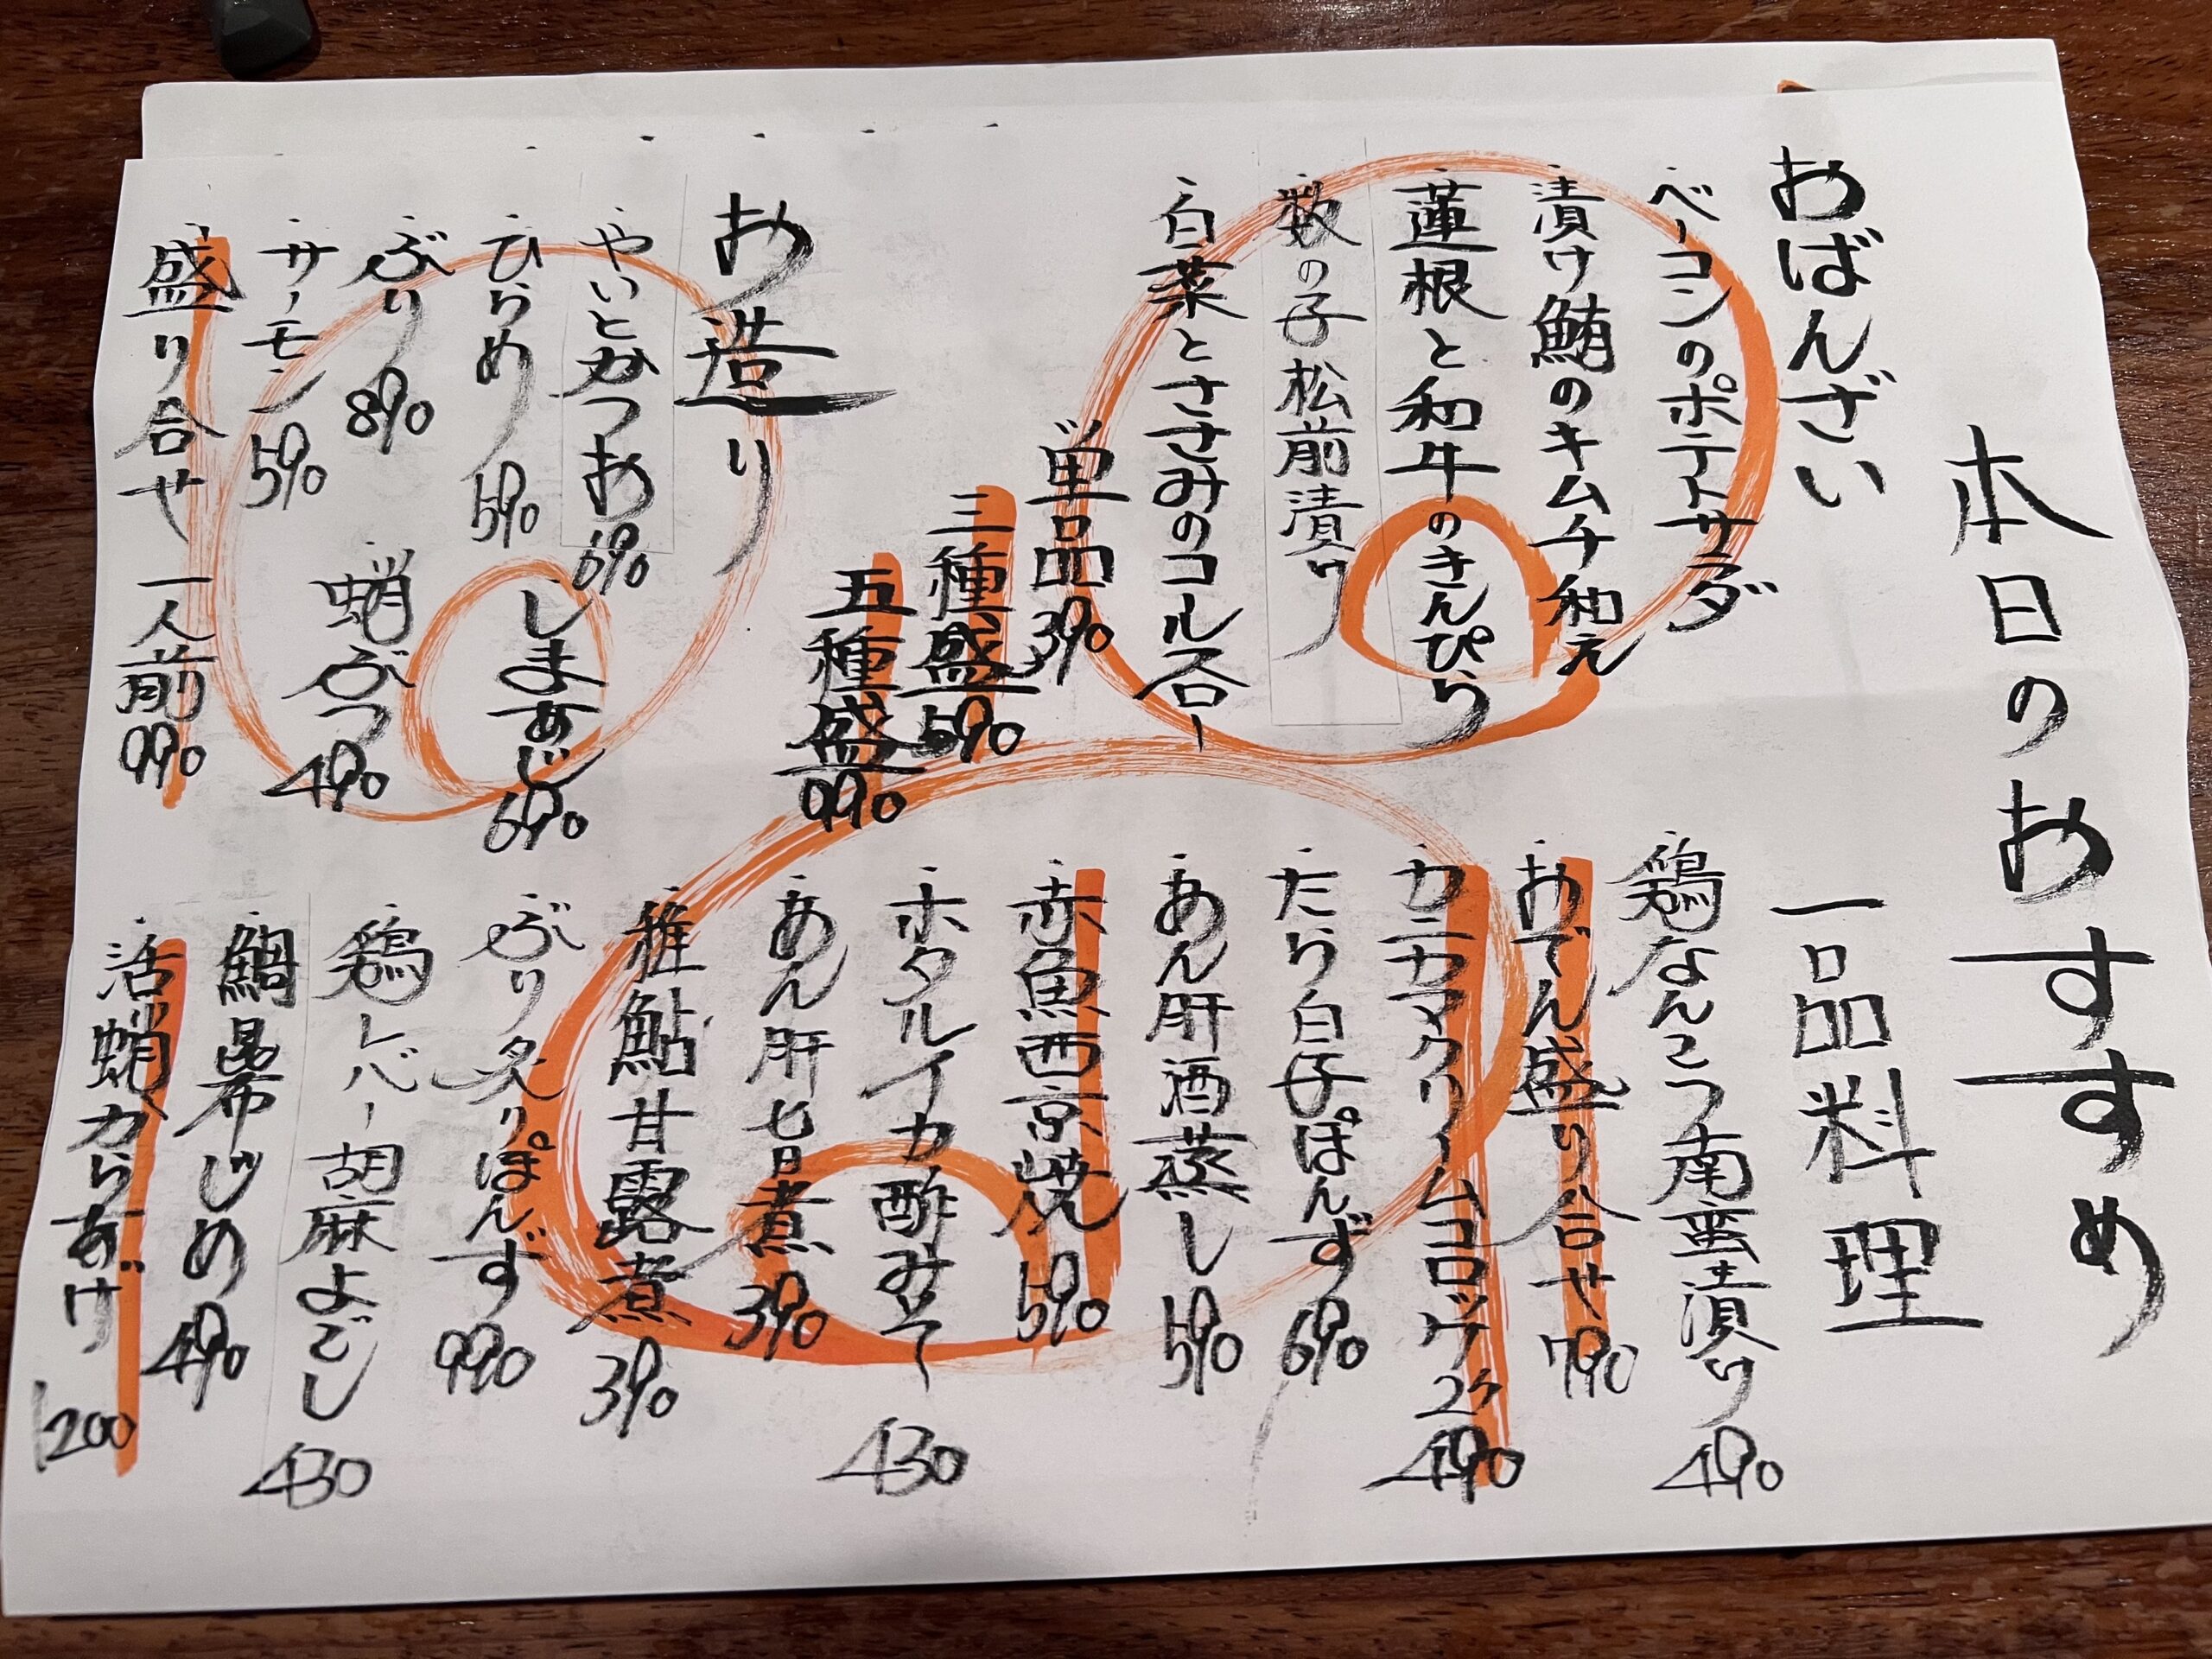 本日のおすすめ
おばんざい
・ベーコンのポテトサラダ
・漬け鮪のキムチ和え
・蓮根と和牛のきんぴら
・数の子松前漬け
・白菜とささみのコルスロー
単品 390
三種盛 590
五種盛 990
お造り
・やいとかつお 690
・ひらめ 590
・しまあじ 690
・ぶり 890
・蛸ぶつ 490
・サーモン 590
・盛り合せ 一人前 990
一品料理
・鶏なんこつ南蛮漬け 490
・おでん盛り合せ 790
・カニカマクリームコロッケ 2ケ 490
・たら白子ぽんず 690
・あん肝酒蒸し 590
・赤魚西京焼 590
・ホタルイカ酢みそ 430
・あん肝旨煮 390
・稚鮎甘露煮 390
・ぶり炙りぽんず 990
・鶏レバー胡麻よごし 430
・鯛昆布じめ 490
・活蛸からあげ 1200